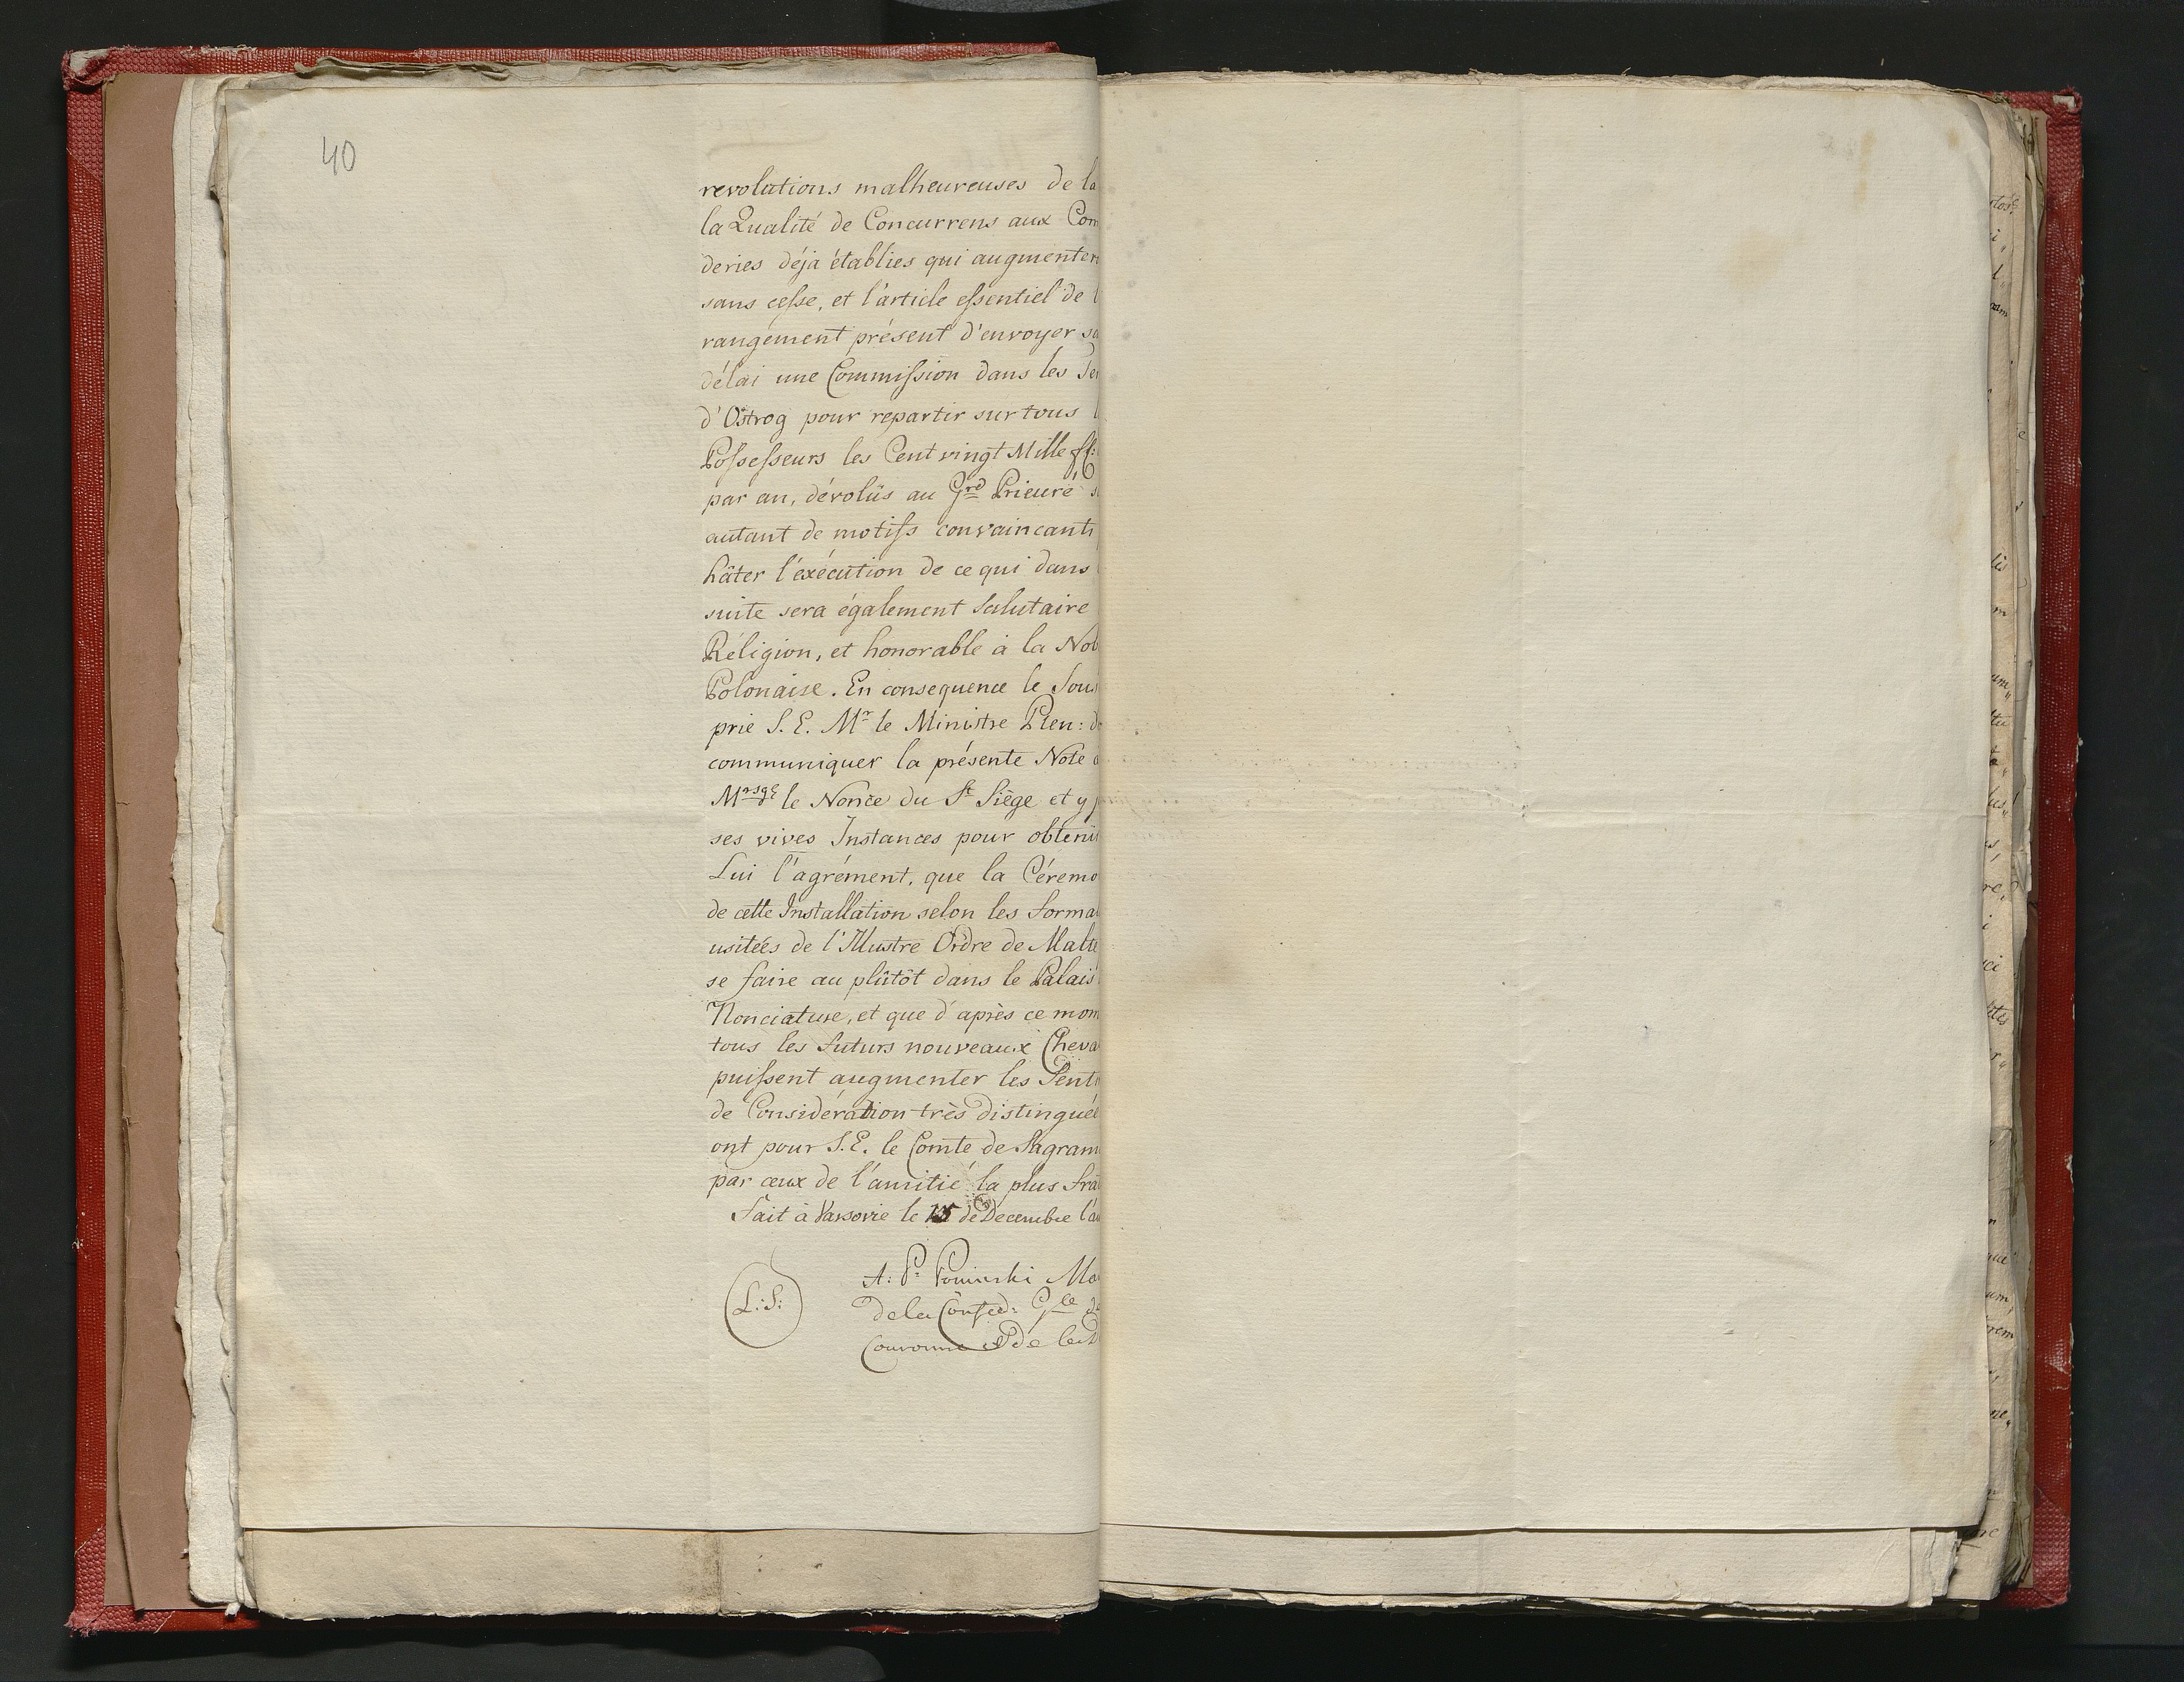 40
revolutions malheureuses de la
la Qualité de Concurrens aux Com
deries déja établies qui augmenten
sans cesse, et l'article essentiel de l
rangement présent d'envoyer sa
délai une Commission dans les Ter
d'Ostrog pour repartir sur tous l
Possesseurs les Cent vingt Mille ff:
par an, dévolüs au Grd Prieuré s
autant de motifs convaincants
hâter l'exécution de ce qui dans
suite sera également Salutaire
Réligion, et honorable à la Nob
Polonaise. En consequence le Sous
prie S. E. Mr le Ministre Plen: de
communiquer la présente Note à
le Nonce du St Siège et y j
ses vives Instances pour obtenir
Lui l'agrément, que la Céremo
de cette Installation selon les forma
usitées de l'Illustre Ordre de Malte
se faire au plûtôt dans le Palais
Nonciature, et que d'après ce mom
tous les futurs nouveaux Cheva
puissent augmenter les Senti
de Considération très distinguée
ont pour S. E. le Comte de Sagram
par ceux de l'amitié la plus fra
Fait à Varsovie le de Decembre l'an
L: S:
A: Pr: Poninski Ma
de la Confed: Gle de
Couronne et de